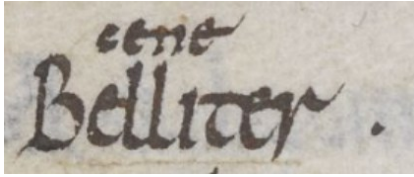 cene
Belliter .